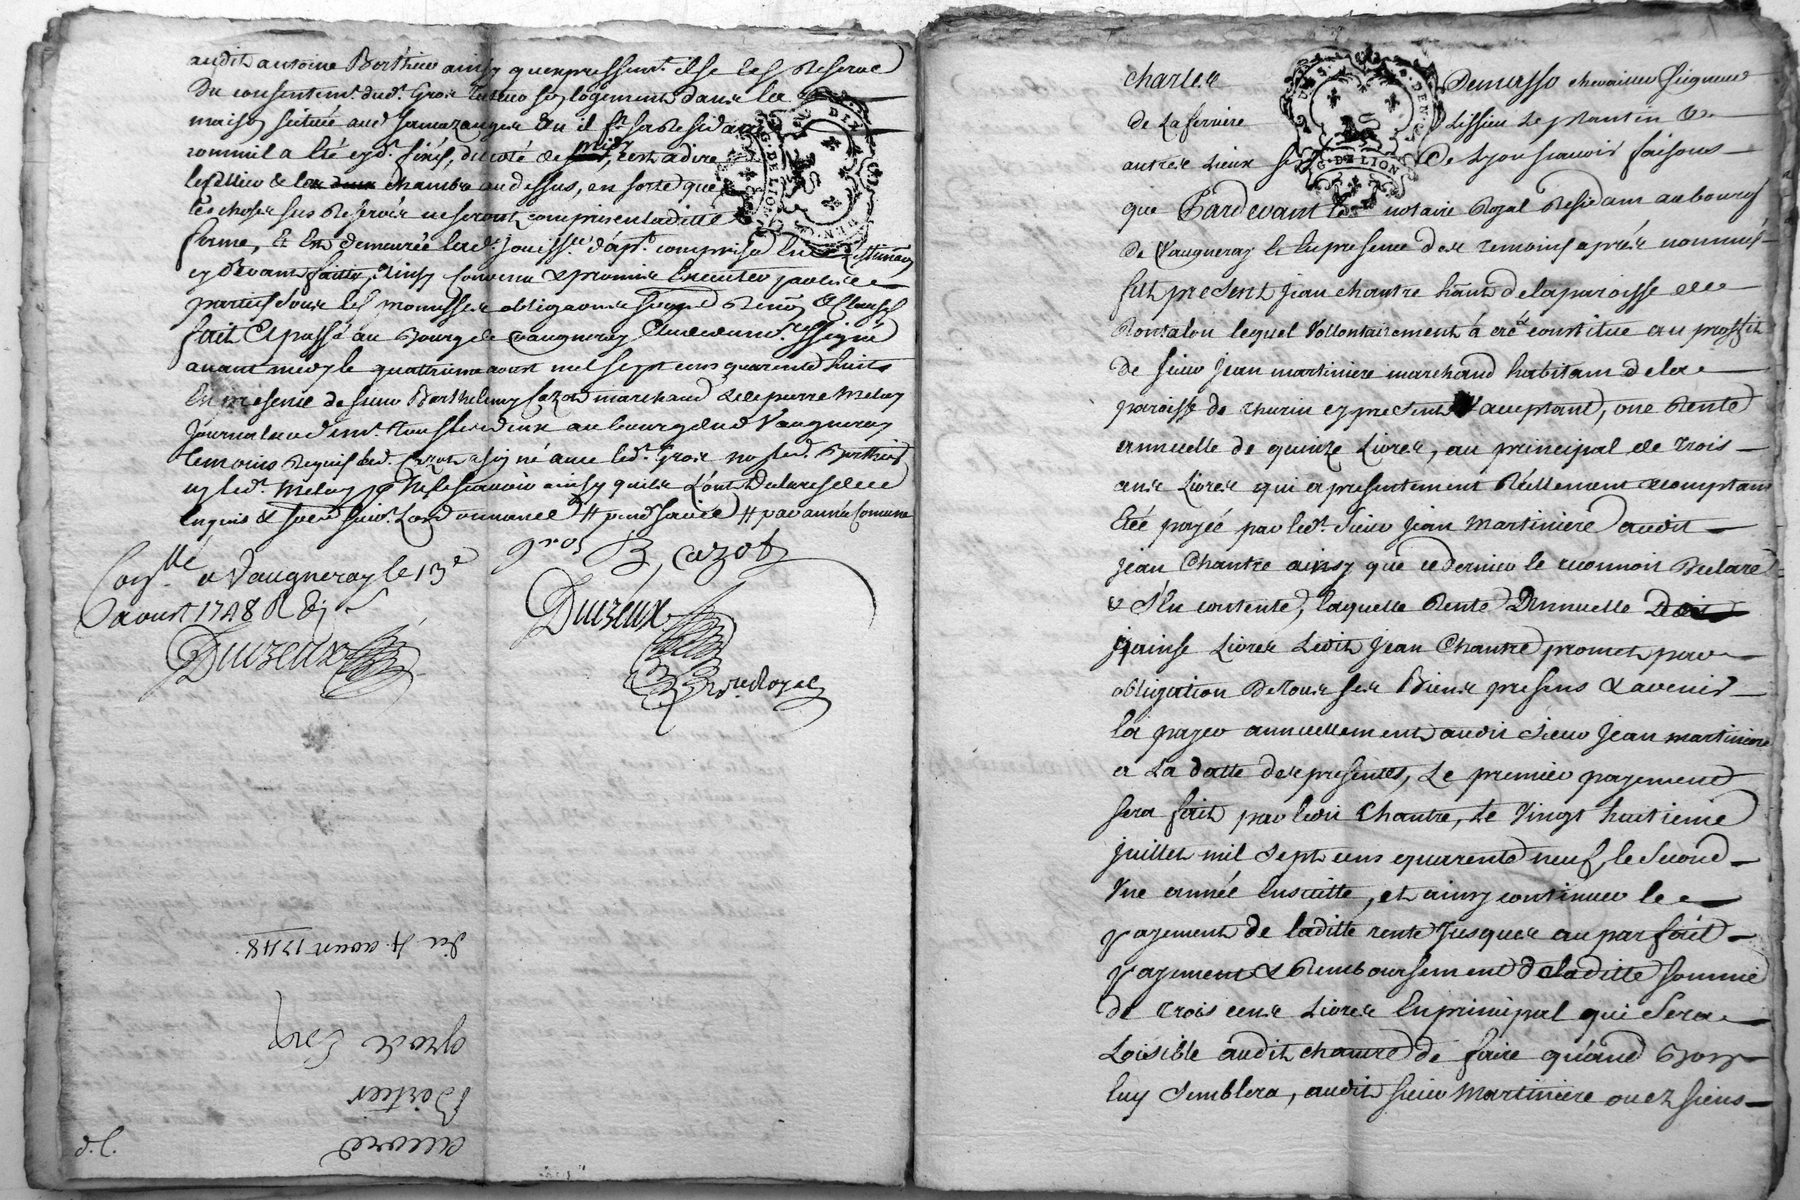 audit antoine Berthieu ainsy qu'expressem.t il se les Reserve
Du consentem.t dud. Gros son logement dans la
maison scituée aud. ou il f.t sa Residance
comme il a été cyd.t fixé, du coté de c'est a dire
le cellier & la chambre au dessus, en sorte que
les choses sus Reservées ne seront comprises en laditte
ferme, Et en demeurée lad. jouiss.ce d'ap.t comprise en L'Estimaõn
cy Devant faitte, Ainsy Convenu & promis Executer par les
parties sous les promesses obligaõns Renõn & Clauses
fait Et passé au Bourg de Vaugneray soussigné
avant midy le quatrieme aoust mil sept cens quarente huit
En presence de sieur Barthelemy Cazot marchand & de pierre Melay
journalier dem.t tous les deux au bourg dud. Vaugneray
temoins Requis led. Cazot a signé avec led. Gros non led. Berthieu
ny led. Melay p.r ne le scavoir ainsy qu'ils L'ont Declaré de ce
Enquis & suiv.t L'ordonnance // par année Comune
gros B, Cazot
Con.llé a Vaugneray le 13.e
aoust 1748 R
Duizeux
Duizeux
N.re Royal
du 4 aoust 1748.
gros &
Bertier
accord
DIX DEN.
G. DE LION
Charles Demasso chevalier seigneur
de La ferriere Lissieu Le plantin &
autres Lieux de Lyon scavoir faisons
que Pardevant Le notaire Royal Residant au bourg
De Vaugneray & En presence des temoins aprés nommés
fut present Jean Chantre hãnt de la paroisse de
Rontalon lequel Vollontairement à créé constitué au proffit
de sieur Jean martiniere marchand habitant de la
paroisse de Thurin cy present & acceptant, une Rente
annuelle de quinze Livres, au principal de trois
cens Livres qui a presentement Réellement & comptant
Eté payée par led. Sieur Jean Martiniere audit
Jean Chantre ainsy que ce dernier le reconnoit Declaré
& S'En contente, laquelle Rente Annuelle De
quinse Livres Ledit Jean Chantre promet par
obligation De tous ses Biens presens & avenir
la payer annuellement audit Sieur Jean martiniere
a La datte des presentes, Le premier payement
sera fait par ledit Chantre, Le Vingt huitieme
juillet mil sept cens quarente neuf, le Second
Une année Ensuitte, et ainsy continuer le
payement de laditte rente Jusques au parfait
payement & Remboursement de laditte somme
de trois cens Livres En principal qui Sera
Loisible audit chantre de faire quand Bon
luy Semblera, audit sieur Martiniere ou ez siens
DIX DEN.
G. DE LION